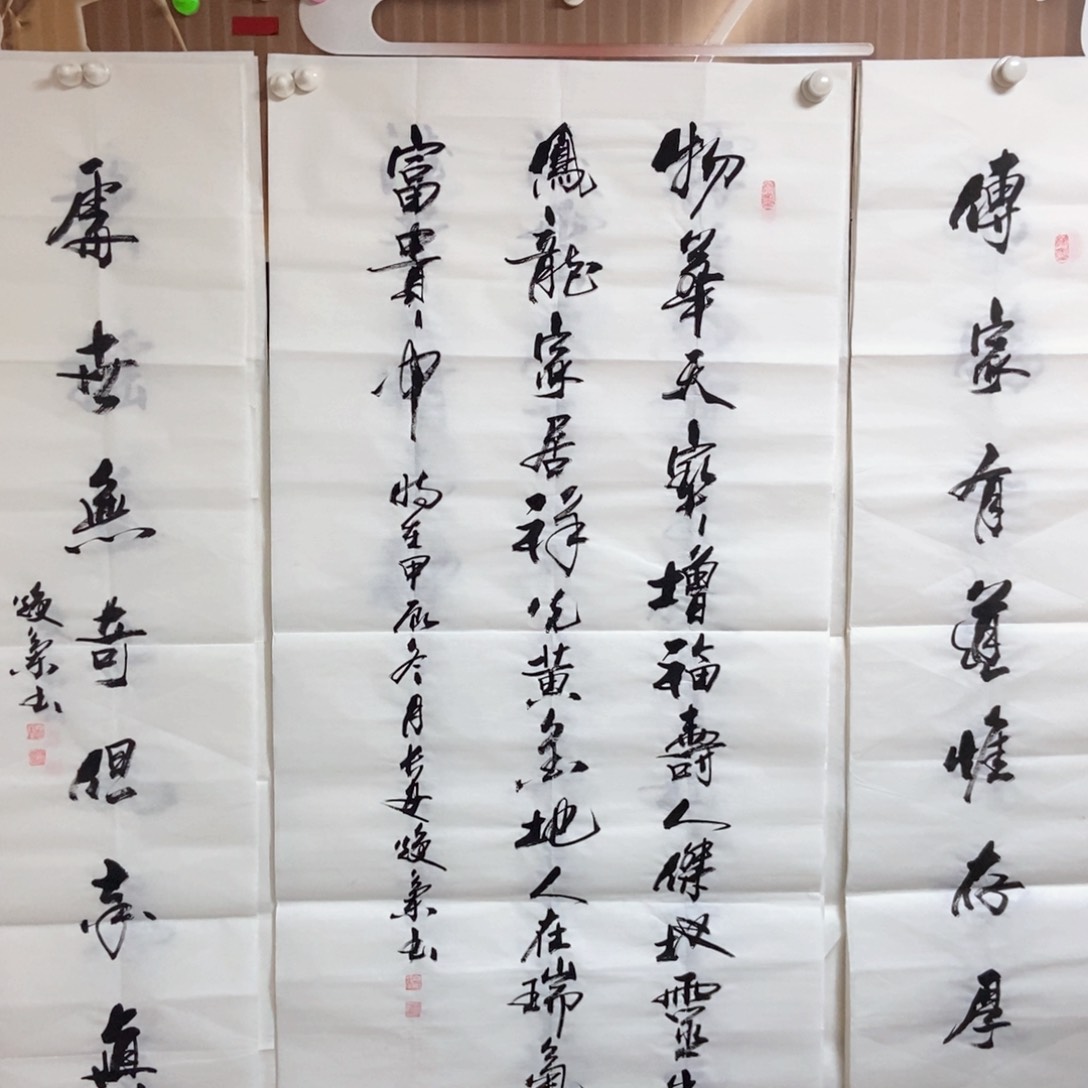 傳家有道惟存厚
物華天寶增福壽人傑地靈生
鳳龍家居祥光黃金地人在瑞氣
富貴中
時在甲辰冬月長安煥書
處世無奇但率真
煥書